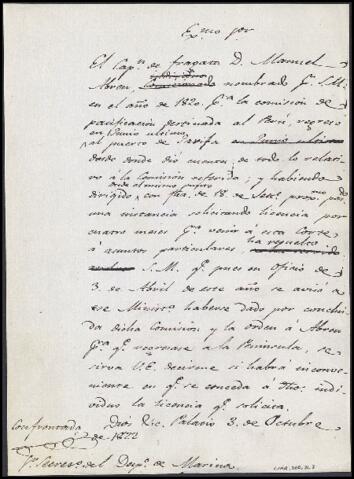 Exmo Sor
El Capn. de fragata D. Manuel
Abreu, individuo nombrado Pr. S.M.
en el año de 1820. Pra. la comision de
pacificacion destinada al Perú, regresó
en Junio ultimo
al puerto de Tarifa en Junio ultimo
desde donde dio cuenta de todo lo relati
vo á la Comision referida; y habiendo
desde el mismo punto
dirigido con fha. de 18 de Sete. proxmo. pdo.
una instancia solicitando licencia por
cuatro meses Pra. venir á esta Corte
á asuntos particulares ha resuelto
S.M. qe. pues en oficio de
3. de Abril de este año se avisó á
ese Ministo. haberse dado por conclui
da dicha Comision y la orden á Abreu
Pra. qe. regresase á la Peninsula, se
sirva V.E. decirme si habrá inconve
niente en qe. se conceda á dho. indi
viduo la licencia qe. solicita.
Dios &c. Palacio 3. de Octubre
de 1822
Confrontada
Sr. Secreto. del Despo. de Marina